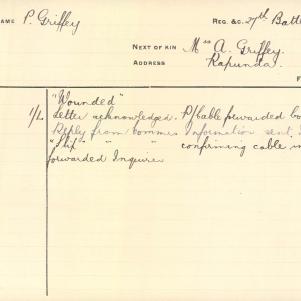 NAME P. Griffey REG. &C. 27th Batt
NEXT OF KIN Mrs A. Griffey.
ADDRESS Kapunda.
"Wounded"
Letter acknowledged. P/cable forwarded
Reply from commrs Information sent
"Slip" " " confirming cable in
forwarded Inquirer